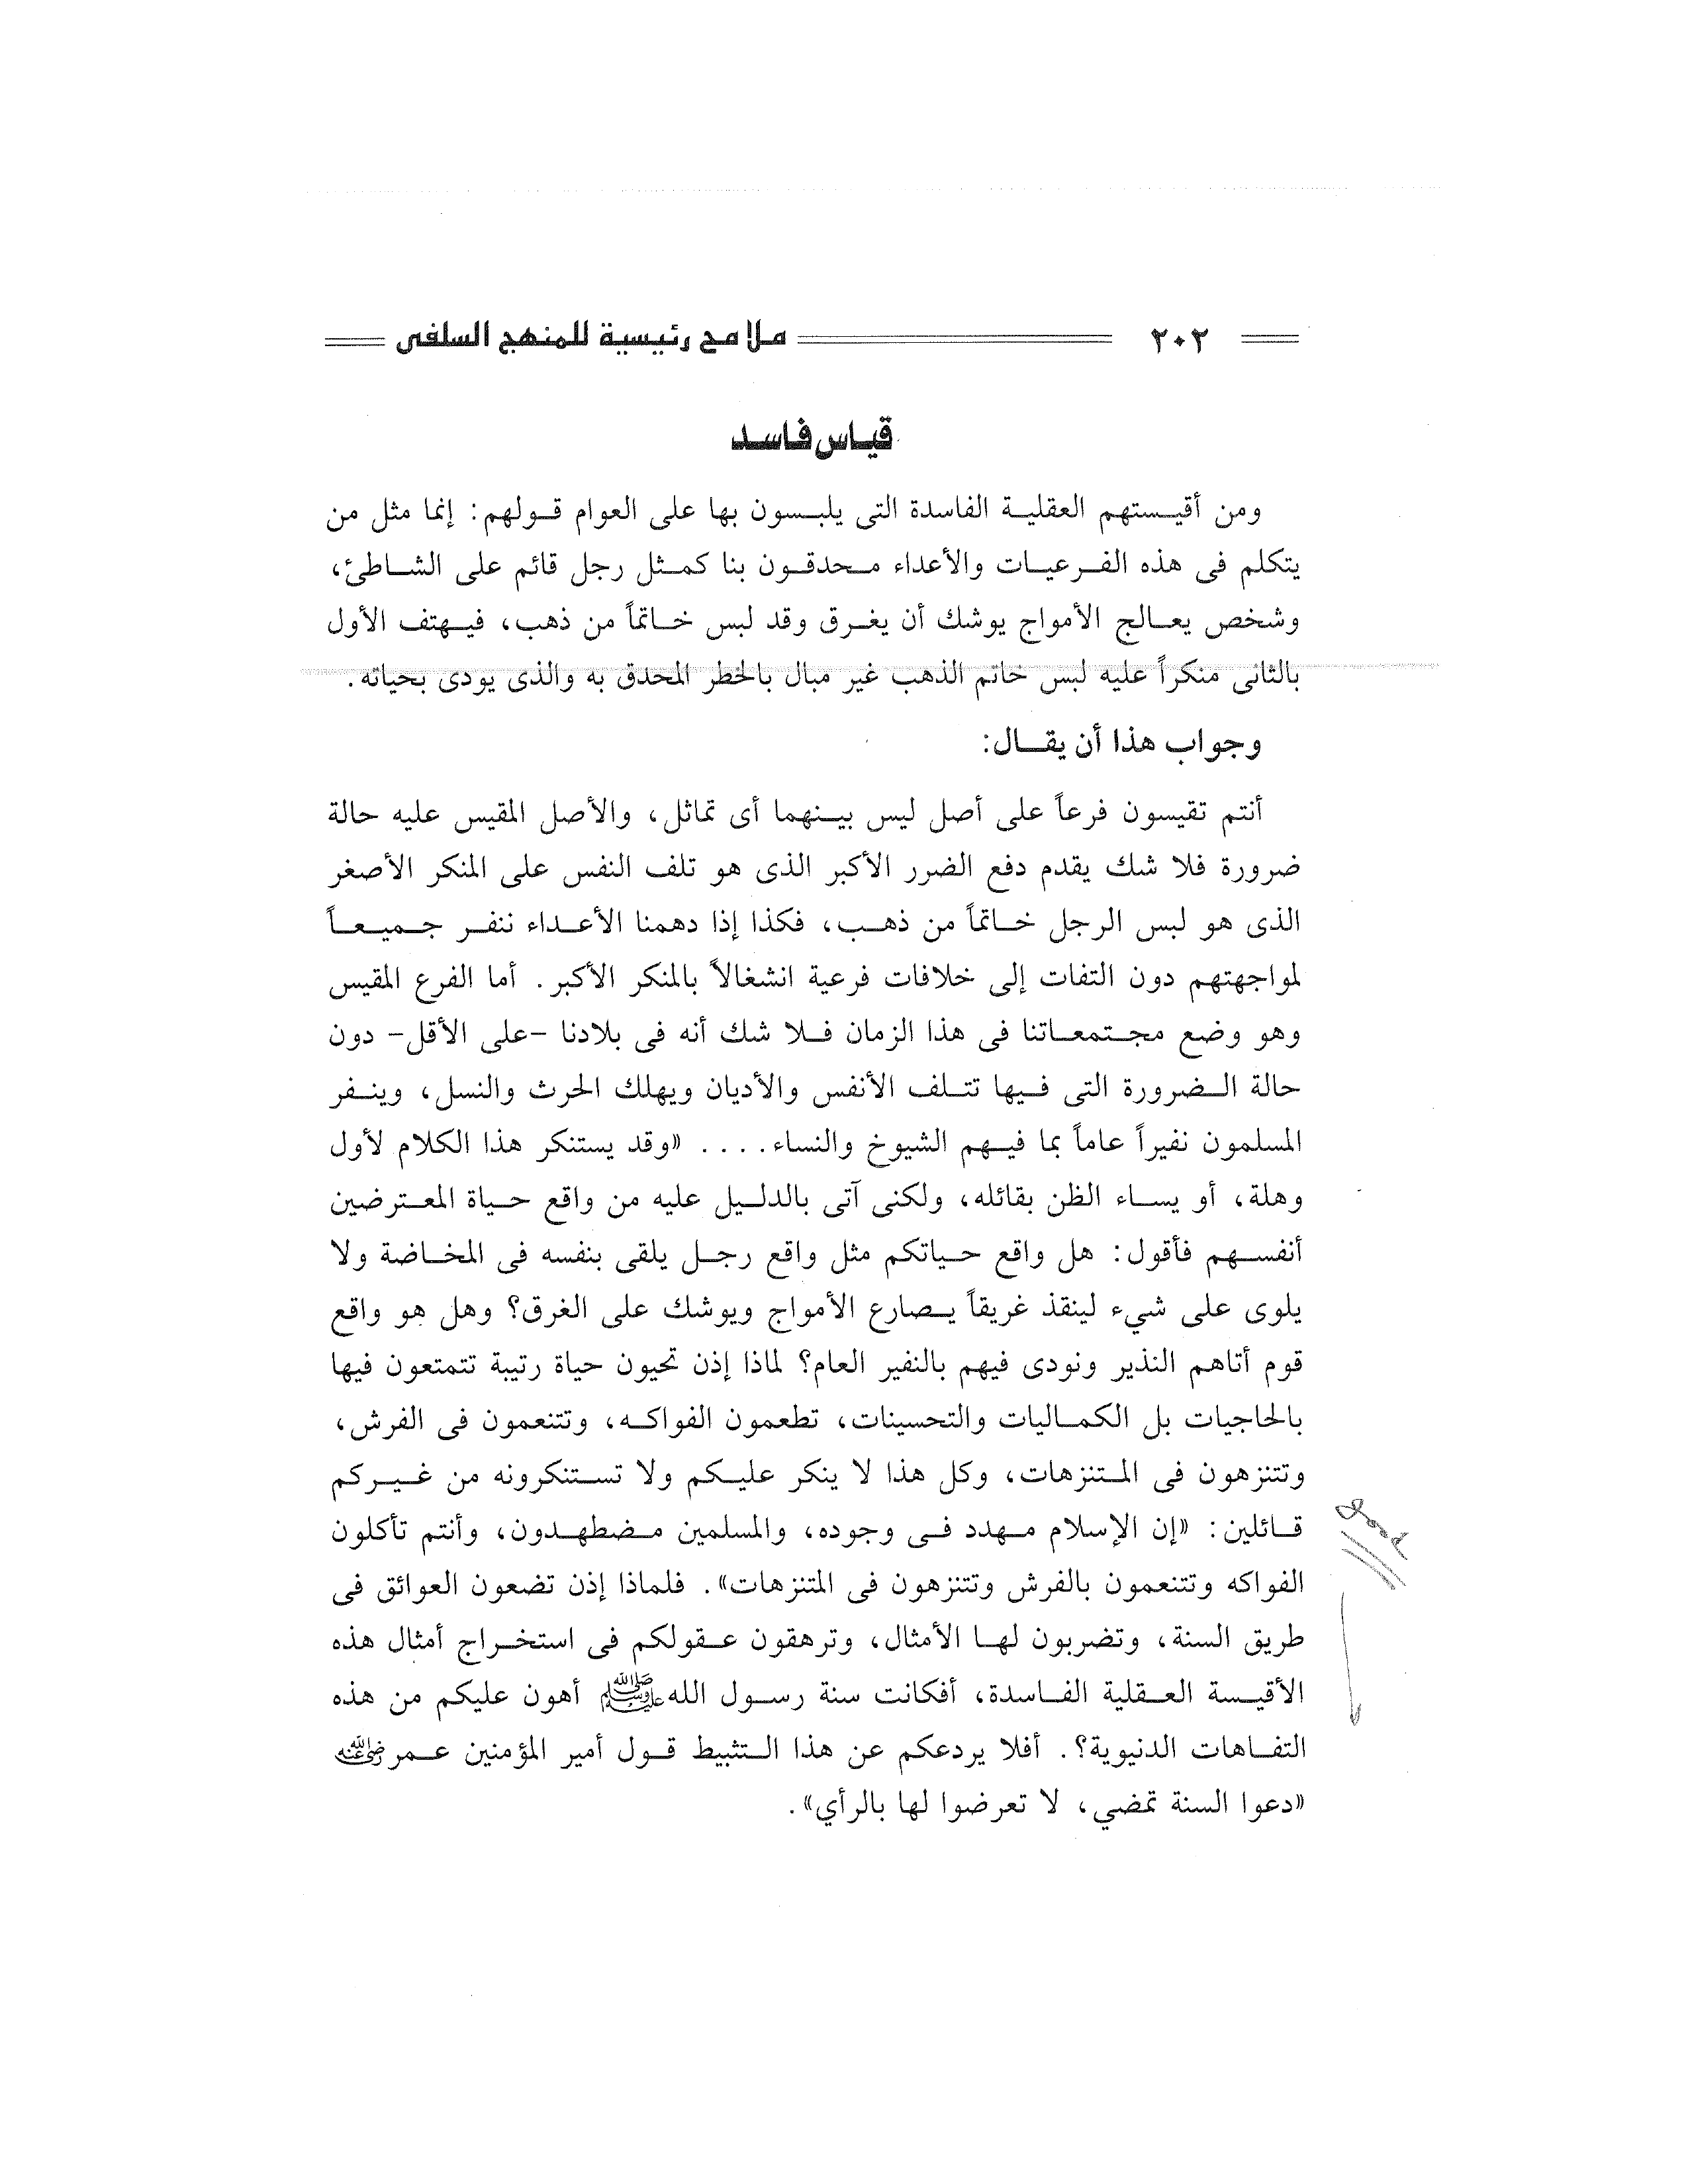 ٢٠٢ ملامح رئيسية للمنهج السلفى
قياس فاسد
ومن أقيستهم العقلية الفاسدة التى يلبسون بها على العوام قولهم: إنما مثل من
يتكلم فى هذه الفرعيات والأعداء محدقون بنا كمثل رجل قائم على الشاطئ،
وشخص يعالج الأمواج يوشك أن يغرق وقد لبس خاتماً من ذهب، فيهتف الأول
بالثانى منكراً عليه لبس خاتم الذهب غير مبال بالخطر المحدق به والذى يودى بحياته.
وجواب هذا أن يقال:
أنتم تقيسون فرعاً على أصل ليس بينهما أى تماثل، والأصل المقيس عليه حالة
ضرورة فلا شك يقدم دفع الضرر الأكبر الذى هو تلف النفس على المنكر الأصغر
الذى هو لبس الرجل خاتماً من ذهب، فكذا إذا دهمنا الأعداء ننفر جميعاً
لمواجهتهم دون التفات إلى خلافات فرعية انشغالاً بالمنكر الأكبر. أما الفرع المقيس
وهو وضع مجتمعاتنا فى هذا الزمان فلا شك أنه فى بلادنا -على الأقل- دون
حالة الضرورة التى فيها تتلف الأنفس والأديان ويهلك الحرث والنسل، وينفر
المسلمون نفيراً عاماً بما فيهم الشيوخ والنساء.... «وقد يستنكر هذا الكلام لأول
وهلة، أو يساء الظن بقائله، ولكنى آتى بالدليل عليه من واقع حياة المعترضين
أنفسهم فأقول: هل واقع حياتكم مثل واقع رجل يلقى بنفسه فى المخاضة ولا
يلوى على شيء لينقذ غريقاً يصارع الأمواج ويوشك على الغرق؟ وهل هو واقع
قوم أتاهم النذير ونودى فيهم بالنفير العام؟ لماذا إذن تحيون حياة رتيبة تتمتعون فيها
بالحاجيات بل الكماليات والتحسينات، تطعمون الفواكه، وتتنعمون فى الفرش،
وتتنزهون فى المتنزهات، وكل هذا لا ينكر عليكم ولا تستنكرونه من غيركم
قائلين: «إن الإسلام مهدد فى وجوده، والمسلمين مضطهدون، وأنتم تأكلون
الفواكه وتتنعمون بالفرش وتتنزهون فى المتنزهات». فلماذا إذن تضعون العوائق فى
طريق السنة، وتضربون لها الأمثال، وترهقون عقولكم فى استخراج أمثال هذه
الأقيسة العقلية الفاسدة، أفكانت سنة رسول الله ﷺ أهون عليكم من هذه
التفاهات الدنيوية؟. أفلا يردعكم عن هذا التثبيط قول أمير المؤمنين عمر رضي الله عنه
«دعوا السنة تمضي، لا تعرضوا لها بالرأي».